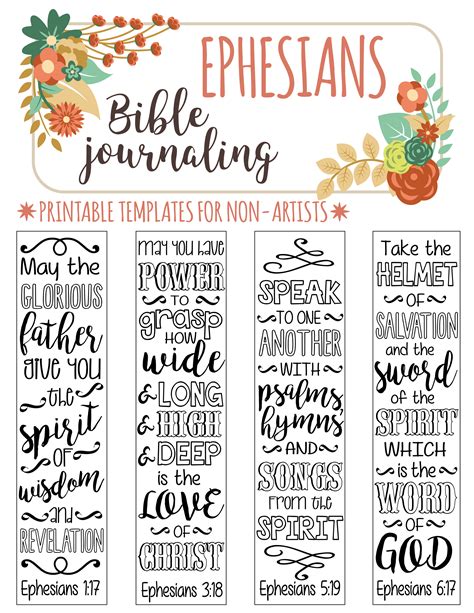 EPHESIANS
Bible
journaling
PRINTABLE TEMPLATES FOR NON-ARTISTS
May the
GLORIOUS
father
give you
the
spirit
OF
wisdom
and
REVELATION
Ephesians 1:17
may you have
POWER
TO
grasp
HOW
wide
& LONG
& HIGH
& DEEP
is the
LOVE
OF
CHRIST
Ephesians 3:18
SPEAK
TO ONE
ANOTHER
WITH
psalms,
hymns,
AND
SONGS
FROM the
SPIRIT
Ephesians 5:19
Take the
HELMET
OF
SALVATION
and the
sword
of the
SPIRIT
WHICH
is the
WORD
OF
GOD
Ephesians 6:17